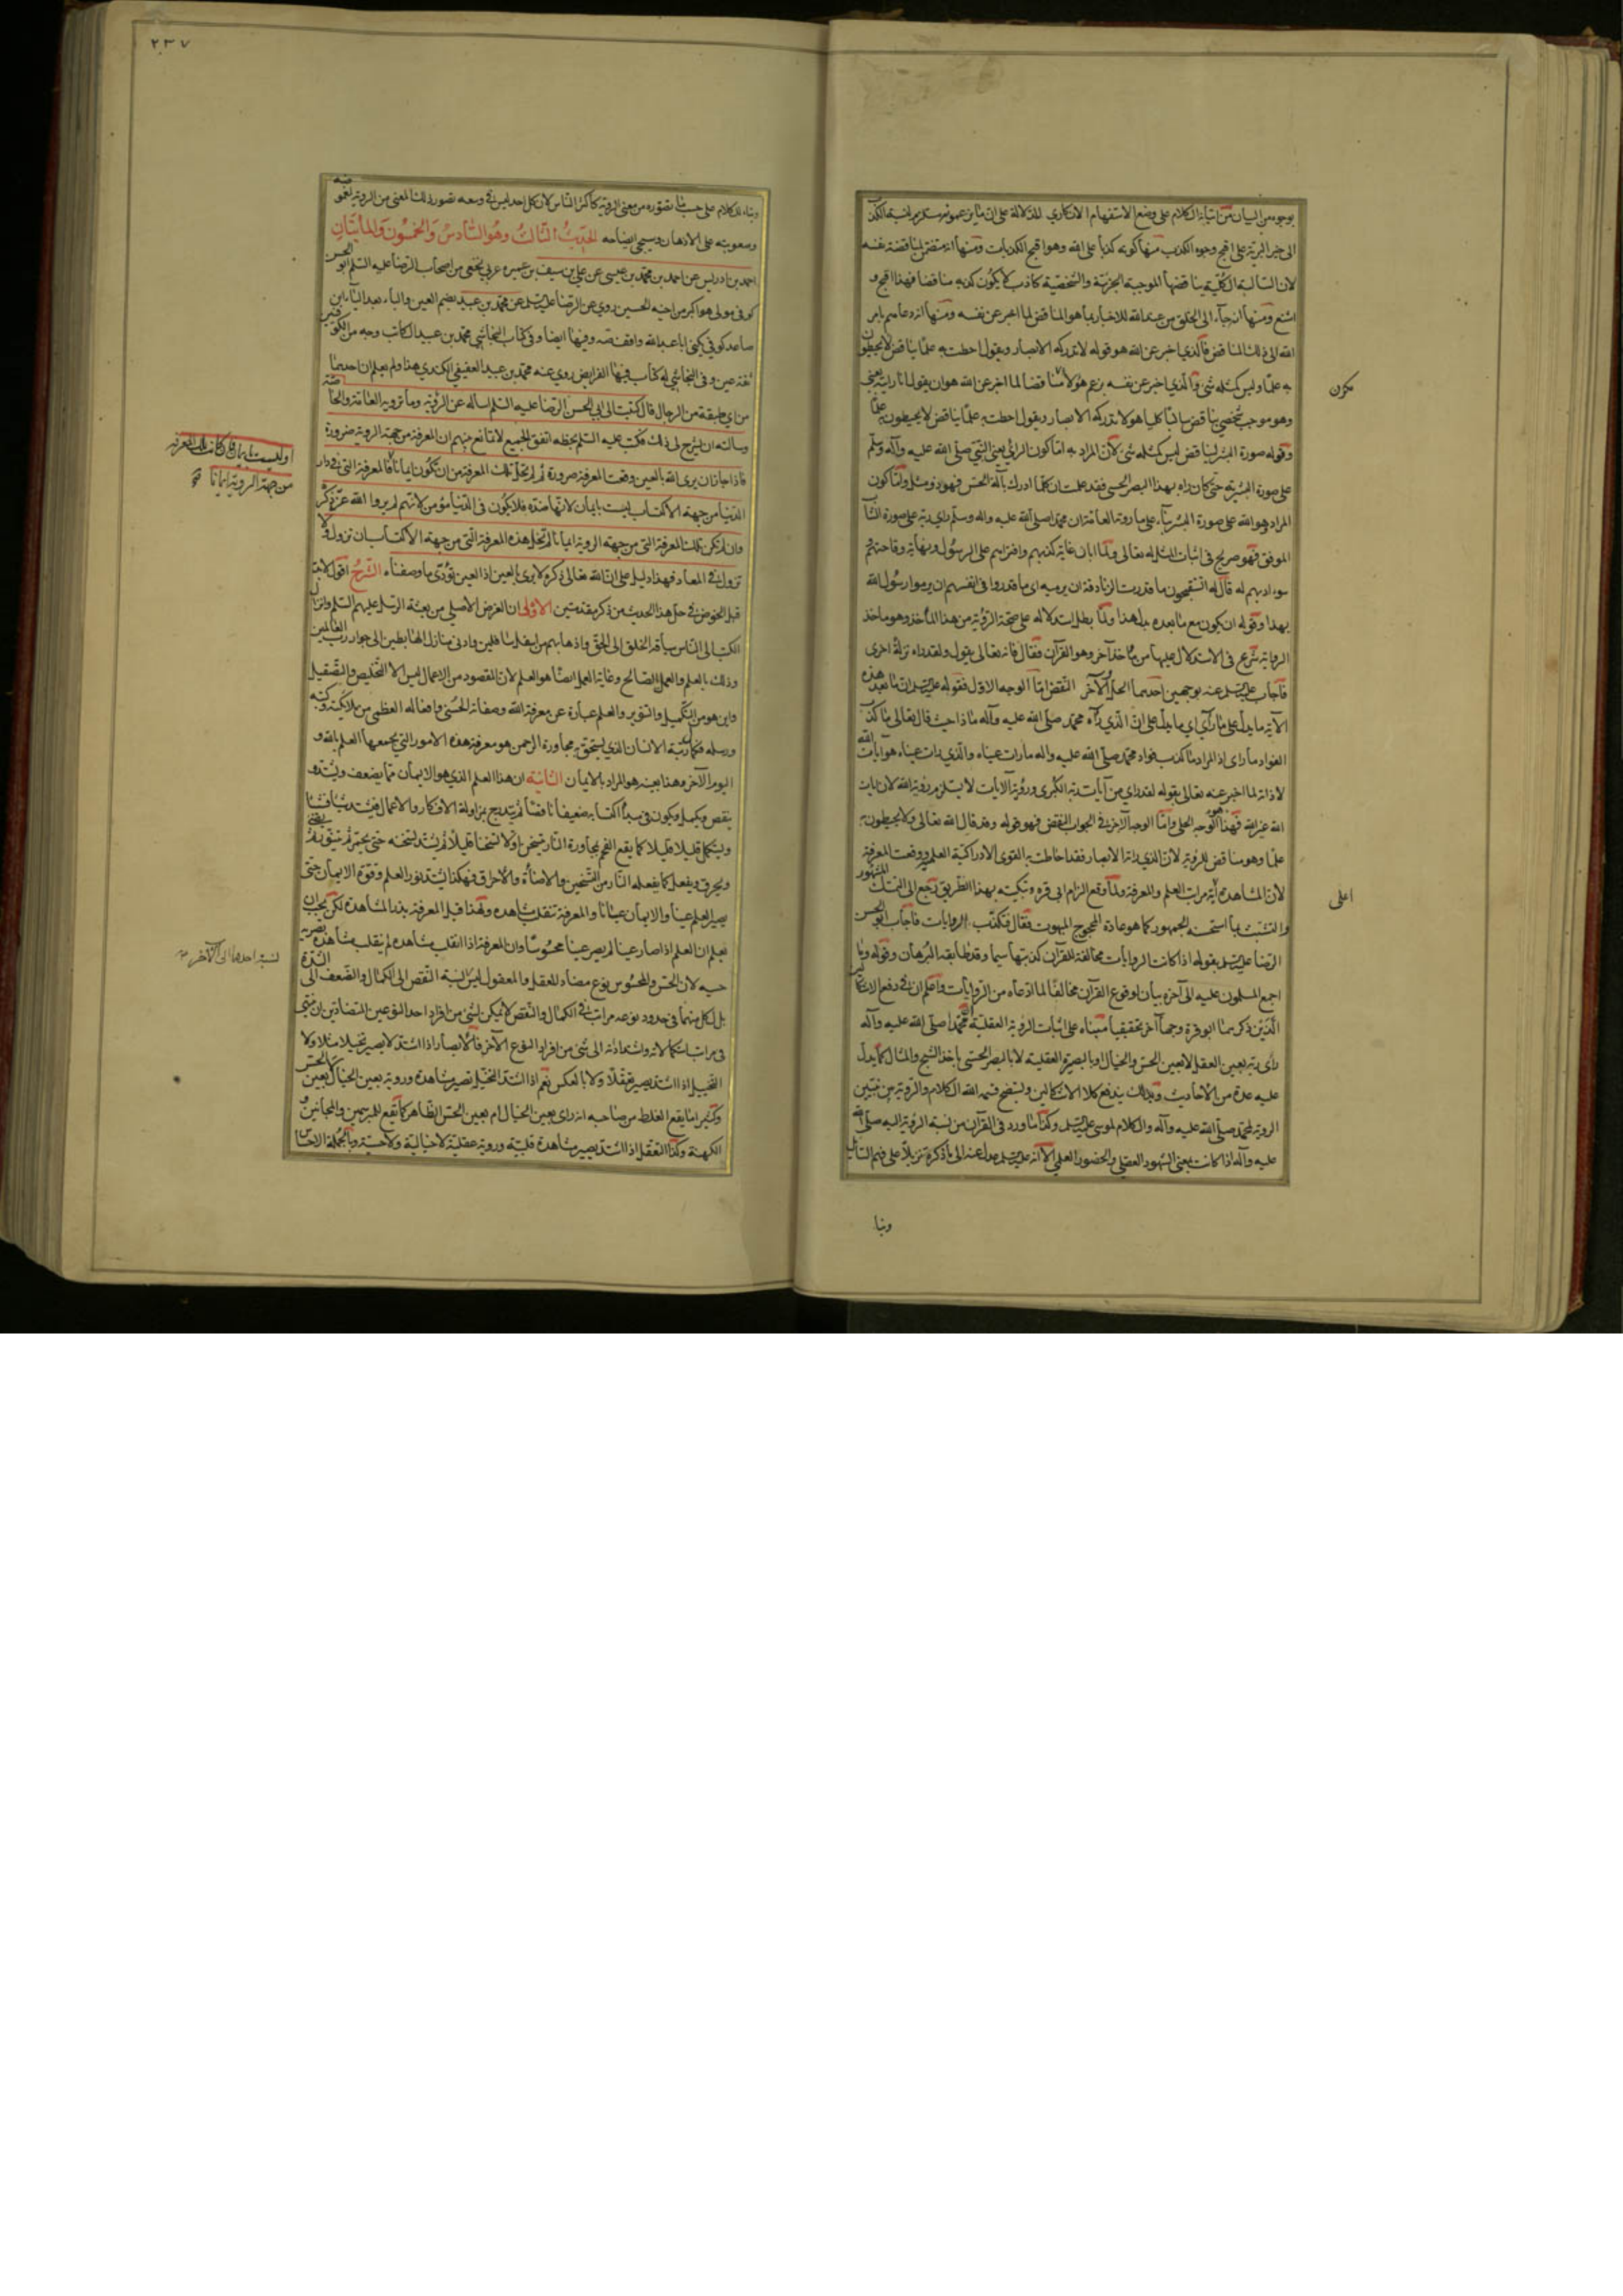 بوجوه من البيان من اتيانه الكلام على وضع الاستفهام الانكاري للدلالة على ان ما يزعمونه مستلزم لنسبة الكذب
الى خير البرية على اقبح وجوه الكذب منها كونه كذبا على الله وهو اقبح الكذبات ومنها انه متضمن لمناقضة نفسه
لان السالبة الكلية يناقضها الموجبة الجزئية والشخصية كاذب لا يكون كذبه مناقضا فهذا اقبح و
اشنع ومنها انه جاء الى الخلق من عند الله للاخبار بما هو المناقض لما اخبر عن نفسه ومنها انه دعاهم بامر
الله الى ذلك المناقض فالذي اخبر عن الله هو قوله لا تدركه الابصار ويقول احطت به علما يناقض لا يحيطون
به علما وليس كمثله شئ والذي اخبر عن نفسه بزعم هؤلاء مناقضا لما اخبر عن الله هو ان يقول انا رايته بعيني
مكرن
وهو موجب شخصي يناقض سالبا كليا هو لا تدركه الابصار ويقول احطت به علما يناقض لا يحيطون به علما
وقوله صورة البشر يناقض ليس كمثله شئ لان المراد به اما كون الرائي يعني النبي صلى الله عليه وآله وسلم
على صورة البشرية حتى كان راه بهذا البصر الحسي فقد علمت ان كلما ادرك بآلة الحس فهو ذو مثل واما كون
المراد هو الله على صورة البشر بناء على ما روته العامة ان محمدا صلى الله عليه واله وسلم راي ربه على صورة الشاب
الموفق فهو صريح في اثبات المثل له تعالى ولما ابان غاية كذبهم وافترائهم على الرسول ونهاية وقاحتهم و
سوء ادبهم له قال اما تستحيون ما قدرت الزنادقة ان يرميه اي ما قدروا في انفسهم ان يرموا رسول الله
بهذا وقوله ان يكون مع ما بعده بدل هذا ولما بطل استدلاله على صحة الرؤية من هذا الماخذ وهو ماخذ
الرواية شرع في الاستدلال عليها من ماخذ آخر وهو القرآن فقال فانه تعالى يقول ولقد راه نزلة اخرى
فاجاب عليه السلم عنه بوجهين احدهما الحل والآخر النقض اما الوجه الاول فقوله عليه السلم ان ما بعد هذه
الآية ما يدل على ما رآى اي ما يدل على ان الذي رآه محمد صلى الله عليه وآله ماذا حيث قال تعالى ما كذب
الفؤاد ما راى اذ المراد ما كذب فواد محمد صلى الله عليه واله ما رات عيناه والذي رات عيناه هو آيات الله
لا ذاته لما اخبر عنه تعالى بقوله لقد راي من آيات ربه الكبرى ورؤية الآيات لا يستلزم رؤية الله لان آيات
الله غير الله فهذا هو الوجه الحلي واما الوجه الآخر في الجواب النقضي فهو قوله وقد قال الله تعالى ولا يحيطون به
علما وهو مناقض للرؤية لان الذي راته الابصار فقد احاطت به القوى الادراكية العلم ووقعت المعرفة
لان المشاهدة مراتب العلم والمعرفة ولما وقع الزام ابي قره وتبكيته بهذا الطريق رجع الى التمسك بالمشهور
اعلى
والتشبث بما استحسنه الجمهور كما هو عادة المحجوج المبهوت فقال فتكذب الروايات فاجاب ابو الحسن
الرضا عليه السلم بقوله اذا كانت الروايات مخالفة للقرآن كذبتها سيما وقد طابقه البرهان وقوله وما
اجمع المسلمون عليه الى آخره بيان لوقوع القرآن مخالفا لما ادعاه من الروايات واعلم ان في دفع الاشكالين
الذين ذكرهما ابو قرة وجها آخر تحقيقيا مبناه على اثبات الرؤية العقلية لمحمد صلى الله عليه وآله
راى ربه بعين العقل لا بعين الحس والخيال او بالبصيرة العقلية لا بالبصر الحسي باخذ الشبح والمثال كما يدل
عليه عدة من الاحاديث وبذلك يندفع كلا الاشكالين ويتضح قسمة الله الكلام والرؤية بين نبيين
الرؤية لمحمد صلى الله عليه وآله والكلام لموسى عليه السلم وكذا ما ورد في القرآن من نسبة الرؤية اليه صلى الله
عليه وآله اذا كانت بمعنى الشهود العقلي والحضور العلمي الا انه عليه السلم عدل عنه الى ما ذكره تنزيلا على فهم السائل
وبنا
٢٣٧
وبناء للكلام على حسب ما تصوره من معنى الرؤية كاكثر الناس لان كل احد ليس في وسعه تصور ذلك المعنى من الرؤية لغموضه
وصعوبته على الاذهان وسيجئ ايضاحه الحديث الثالث وهو السادس والخمسون والمأيتان
احمد بن ادريس عن احمد بن محمد بن عيسى عن علي بن سيف بن عميره عربي نخعي من اصحاب الرضا عليه السلم ابو الحسن
كوفي مولى هو اكبر من اخيه الحسين روي عن الرضا عليه السلم عن محمد بن عبيد بضم العين والباء بعد الياء ابن
صاعد كوفي يكنى ابا عبد الله وفيها ايضا وفي كتاب النجاشي محمد بن عبيد الكاتب وجه من الكوفيين
ثقة عين وفي النجاشي له كتاب فيها الفرايض روي عنه محمد بن عبيد العفيفي الكندي هذا ولم يعلم ان احدهما
من اي طبقة من الرجال قال كتبت الى ابي الحسن الرضا عليه السلم اساله عن الرؤية وما ترويه العامة والخاصة
وسالته ان يشرح لي ذلك فكتب عليه السلم بخطه اتفق الجميع لا تمانع بينهم ان المعرفة من جهة الروية ضرورة
فاذا جاز ان يرى الله بالعين وقعت المعرفة ضرورة ثم لم تخل تلك المعرفة من ان تكون ايمانا فالمعرفة التي في دار
اوليست بايمان فان كانت تلك المعرفة
من جهة الروية ايمانا صح
الدنيا من جهة الاكتساب ليست بايمان لانها ضده فلا يكون في الدنيا مؤمن لانهم لم يروا الله عز ذكره
وان لم تكن تلك المعرفة التي من جهة الروية ايمانا لم تخل هذه المعرفة التي من جهة الاكتساب ان تزول ولا
تزول في المعاد فهذا دليل على ان الله تعالى ذكره لا يرى بالعين اذ العين تؤدي ما وصفناه الشرح اقول لابد
قبل الخوض في حل هذا الحديث من ذكر مقدمتين الاولى ان الغرض الاصلي من بعثة الرسل عليهم السلم وانزال
الكتب الى الناس سياقة الخلق الى الحق واذهابهم من اسفل سافلين وادنى منازل الهابطين الى جوار رب العالمين
وذلك بالعلم والعمل الصالح وغاية العمل ايضا هو العلم لان المقصود من الاعمال ليس الا التخليص والتصقيل
واين هو من التكميل والتنوير والعلم عبارة عن معرفة الله وصفاته الحسنى وافعاله العظمى من ملائكته وكتبه
ورسله فكمال رتبة الانسان الذي يستحق به مجاورة الرحمن هو معرفة هذه الامور التي يجمعها العلم بالله و
اليوم الآخر وهذا بعينه هو المراد بالايمان الثانية ان هذا العلم الذي هو الايمان مما يضعف ويشتد و
ينقص ويكمل ويكون في مبدأ اكتسابه ضعيفا ناقصا ثم يتدرج بمزاولة الافكار والاعمال فيشتد شيئا فشيئا
ويستكمل قليلا قليلا كما يقع الفحم بمجاورة النار فيتسخن اولا تسخنا قليلا ثم يشتد تسخنه حتى يحمر ثم يتنور ثم يضئ
ويحرق ويفعل كما يفعله النار من التسخين والاضاءة والاحراق فهكذا يشتد نور العلم وقوة الايمان حتى
يصير العلم عينا والايمان عيانا والمعرفة تنقلب مشاهده ولهذا قيل المعرفة بذر المشاهدة لكن يجب ان
يعلم ان العلم اذا صار عينا لم يصر عينا محسوسا وان المعرفة اذا انقلبت مشاهده لم تنقلب مشاهدة بصرية
حسيه لان الحس والمحسوس نوع مضاد للعقل والمعقول ليس نسبة النقص الى الكمال والضعف الى الشدة
لنسبة احدهما الى الآخر
بل لكل منهما في حدود نوعه مراتب في الكمال والنقص لا يمكن لشئ من افراد احد النوعين المتضادين ان ينتهي
في مراتب استكمالاته واشتداداته الى شئ من افراد النوع الآخر فالابصار اذا اشتد لا يصير تخيلا مثلا ولا
التخيل اذا اشتد يصير تعقلا ولا بالعكس نعم اذا اشتد التخيل تصير مشاهدة ورؤية بعين الخيال لا بعين الحس
وكثيرا ما يقع الغلط من صاحبه انه راى بعين الخيال ام بعين الحس الظاهر كما تقع للمبرسمين والمجانين و
الكهنة وكذا التعقل اذا اشتد يصير مشاهدة قلبية ورؤية عقلية لا خيالية ولا حسية وبالجملة الاحساس